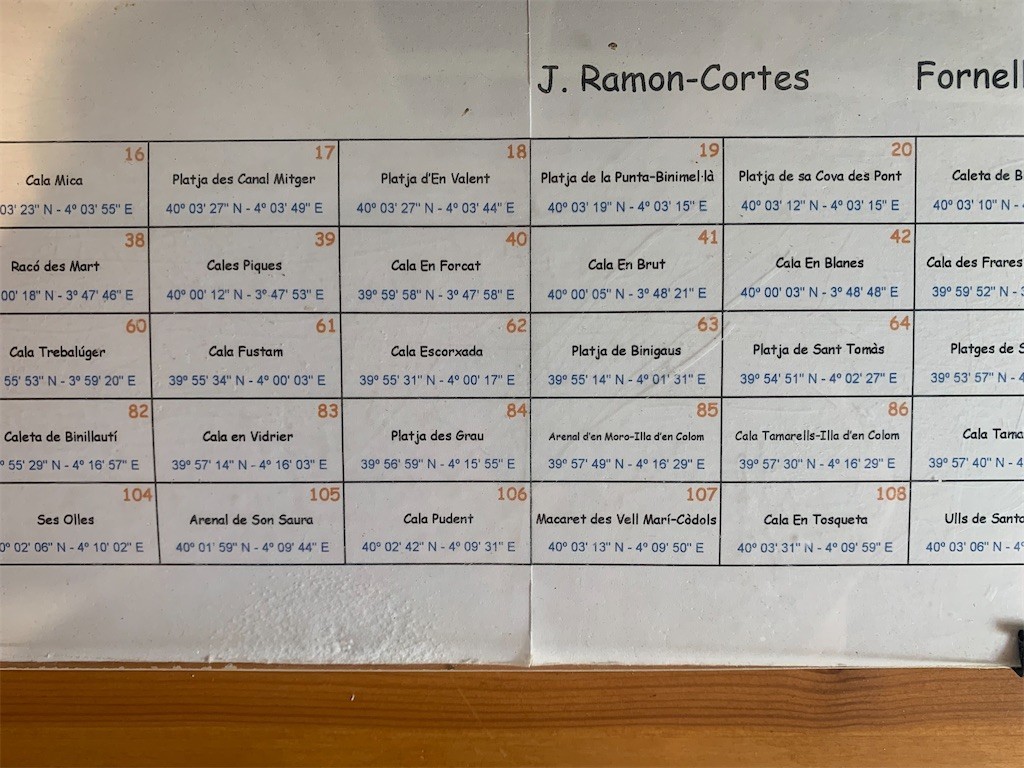 J. Ramon-Cortes Fornell
16 17 18 19 20
Cala Mica Platja des Canal Mitger Platja d'En Valent Platja de la Punta-Binimel·là Platja de sa Cova des Pont Caleta de B
03' 23" N - 4º 03' 55" E 40º 03' 27" N - 4º 03' 49" E 40º 03' 27" N - 4º 03' 44" E 40º 03' 19" N - 4º 03' 15" E 40º 03' 12" N - 4º 03' 15" E 40º 03' 10" N -
38 39 40 41 42
Racó des Mart Cales Piques Cala En Forcat Cala En Brut Cala En Blanes Cala des Frares
00' 18" N - 3º 47' 46" E 40º 00' 12" N - 3º 47' 53" E 39º 59' 58" N - 3º 47' 58" E 40º 00' 05" N - 3º 48' 21" E 40º 00' 03" N - 3º 48' 48" E 39º 59' 52" N - 3
60 61 62 63 64
Cala Trebalúger Cala Fustam Cala Escorxada Platja de Binigaus Platja de Sant Tomàs Platges de S
55' 53" N - 3º 59' 20" E 39º 55' 34" N - 4º 00' 03" E 39º 55' 31" N - 4º 00' 17" E 39º 55' 14" N - 4º 01' 31" E 39º 54' 51" N - 4º 02' 27" E 39º 53' 57" N - 4
82 83 84 85 86
Caleta de Binillautí Cala en Vidrier Platja des Grau Arenal d'en Moro-Illa d'en Colom Cala Tamarells-Illa d'en Colom Cala Tama
º 55' 29" N - 4º 16' 57" E 39º 57' 14" N - 4º 16' 03" E 39º 56' 59" N - 4º 15' 55" E 39º 57' 49" N - 4º 16' 29" E 39º 57' 30" N - 4º 16' 29" E 39º 57' 40" N - 4
104 105 106 107 108
Ses Olles Arenal de Son Saura Cala Pudent Macaret des Vell Marí-Còdols Cala En Tosqueta Ulls de Santa
0º 02' 06" N - 4º 10' 02" E 40º 01' 59" N - 4º 09' 44" E 40º 02' 42" N - 4º 09' 31" E 40º 03' 13" N - 4º 09' 50" E 40º 03' 31" N - 4º 09' 59" E 40º 03' 06" N - 4º